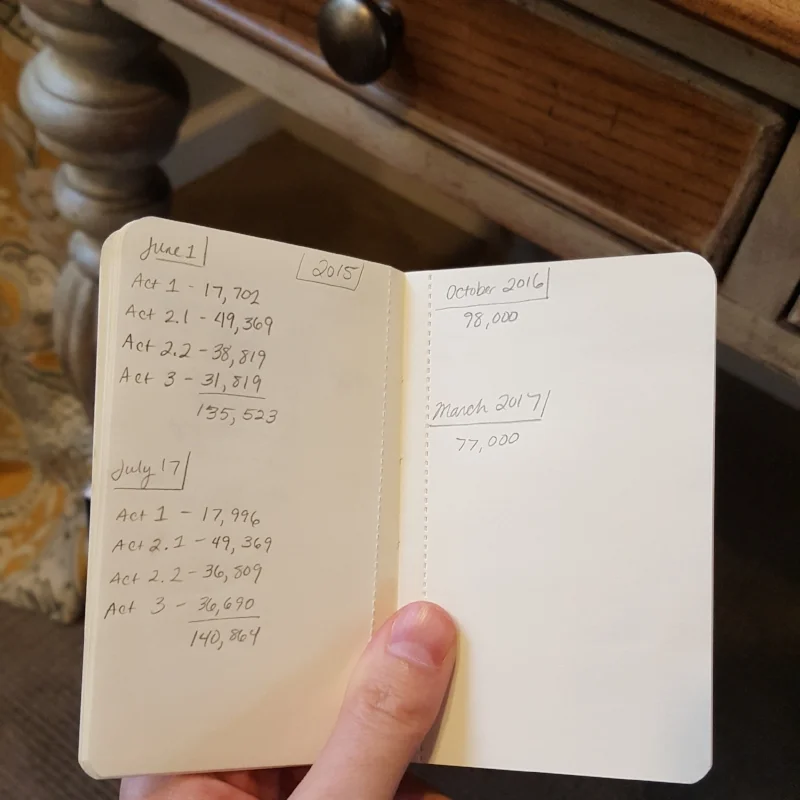 June 1
2015
Act 1 - 17,702
Act 2.1 - 49,369
Act 2.2 - 38,819
Act 3 - 31,819
135,523
July 17
Act 1 - 17,996
Act 2.1 - 49,369
Act 2.2 - 36,809
Act 3 - 36,690
140,864
October 2016
98,000
March 2017
77,000